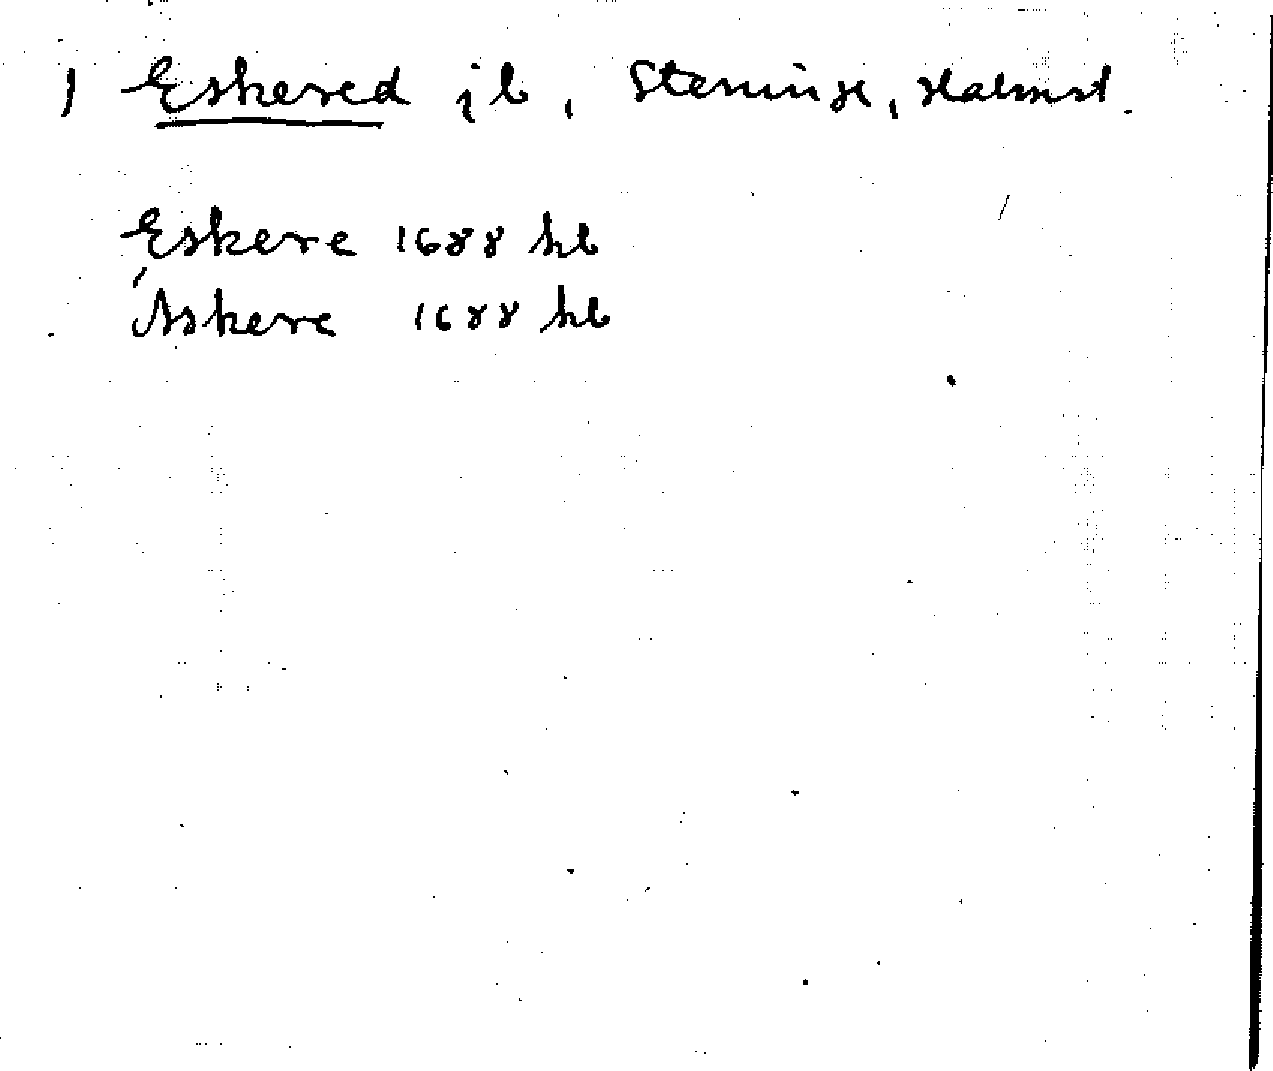 1 Eskered jb, Steninge, Halmst.
Eskere 1688 hb
Askere 1688 hb